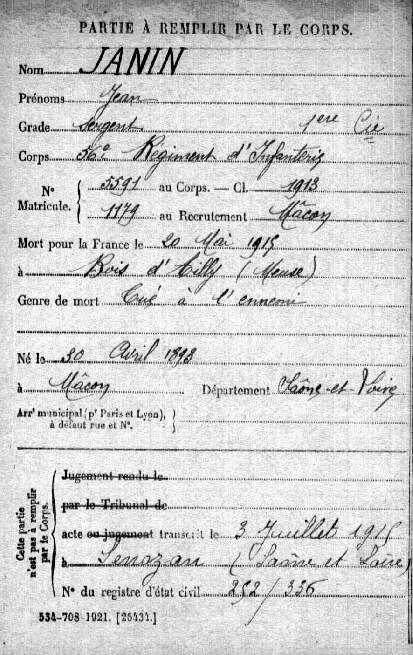 PARTIE À REMPLIR PAR LE CORPS.
Nom JANIN
Prénoms Jean
Grade Sergent 1ère Cie
Corps 56e Régiment d'Infanterie
N° Matricule. { 5591 au Corps. — Cl. 1913
1179 au Recrutement Mâcon
Mort pour la France le 20 Mai 1915
à Bois d'Ailly (Meuse)
Genre de mort Tué à l'ennemi
Né le 30 Avril 1893
à Mâcon Département Saône-et-Loire
Arrt municipal (pr Paris et Lyon), à défaut rue et N°. }
Cette partie n'est pas à remplir par le Corps.
Jugement rendu le
par le Tribunal de
acte ou jugement transcrit le 3 Juillet 1915
à Senozan (Saône et Loire)
N° du registre d'état civil 252/336
534-708-1921. [26434.]